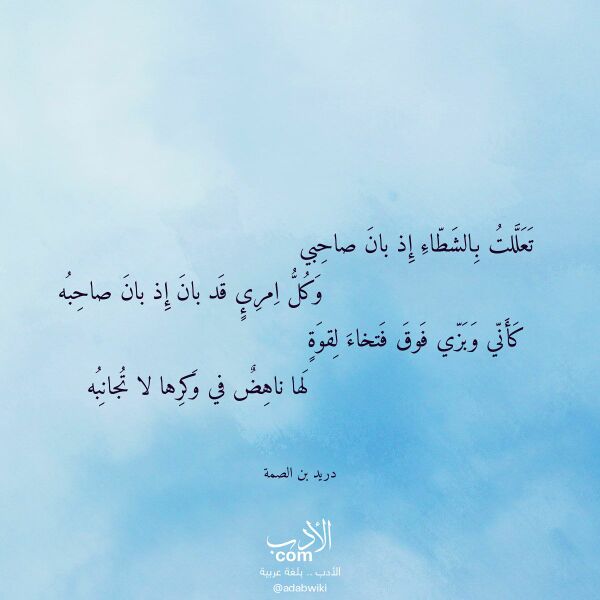 تَعَلَّلتُ بِالشَطّاءِ إِذ بانَ صاحِبي
وَكُلُّ اِمرِئٍ قَد بانَ إِذ بانَ صاحِبُه
كَأَنّي وَبَزّي فَوقَ فَتخاءَ لِقوَةٍ
لَها ناهِضٌ في وَكرِها لا تُجانِبُه
دريد بن الصمة
الأدب
com
الأدب .. بلغة عربية
@adabwiki